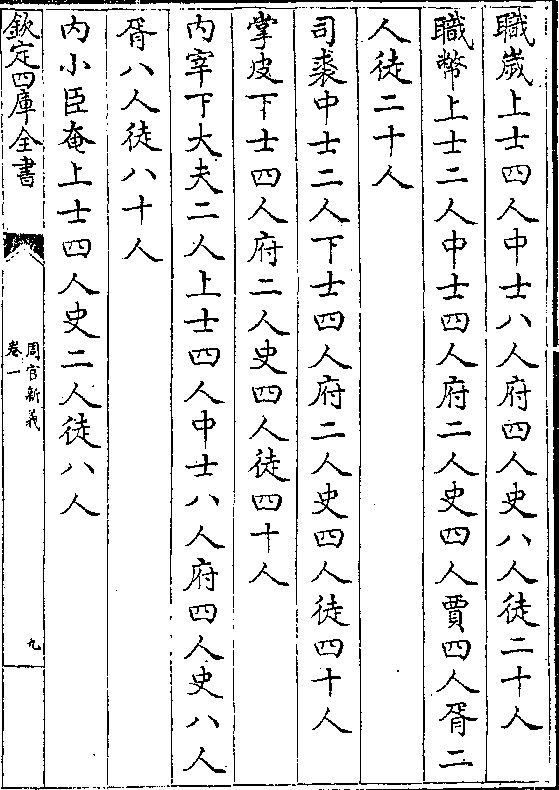 職嵗上士四人中士八人府四人史八人徒二十人
職幣上士二人中士四人府二人史四人賈四人胥二
人徒二十人
司裘中士二人下士四人府二人史四人徒四十人
掌皮下士四人府二人史四人徒四十人
内宰下大夫二人上士四人中士八人府四人史八人
胥八人徒八十人
内小臣奄上士四人史二人徒八人
欽定四庫全書
周官新義
卷一
九